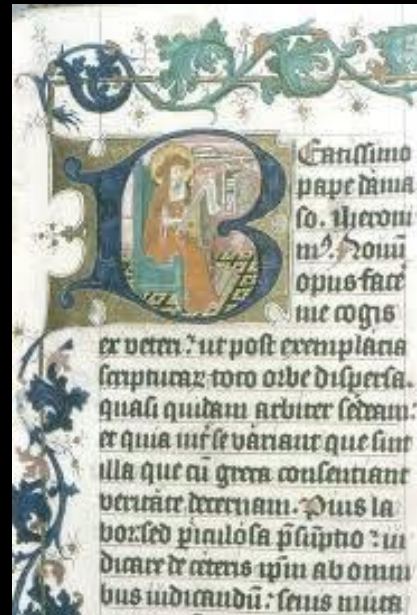 Beatissimo
pape dama
so. iheroni
mꝰ. Nouū
opus facē
me cogis
ex veteri: ut post exemplaria
scripturaꝝ toto orbe dispersa
quasi quidam arbiter sedeam:
et quia int̄ se variant que sint
illa que cū greca consentiant
veritate decernam. Pius la
bor sed p̄iculosa p̄sūptio: iu
dicare de ceteris ip̄m ab omni
bus iudicandū: senis muta